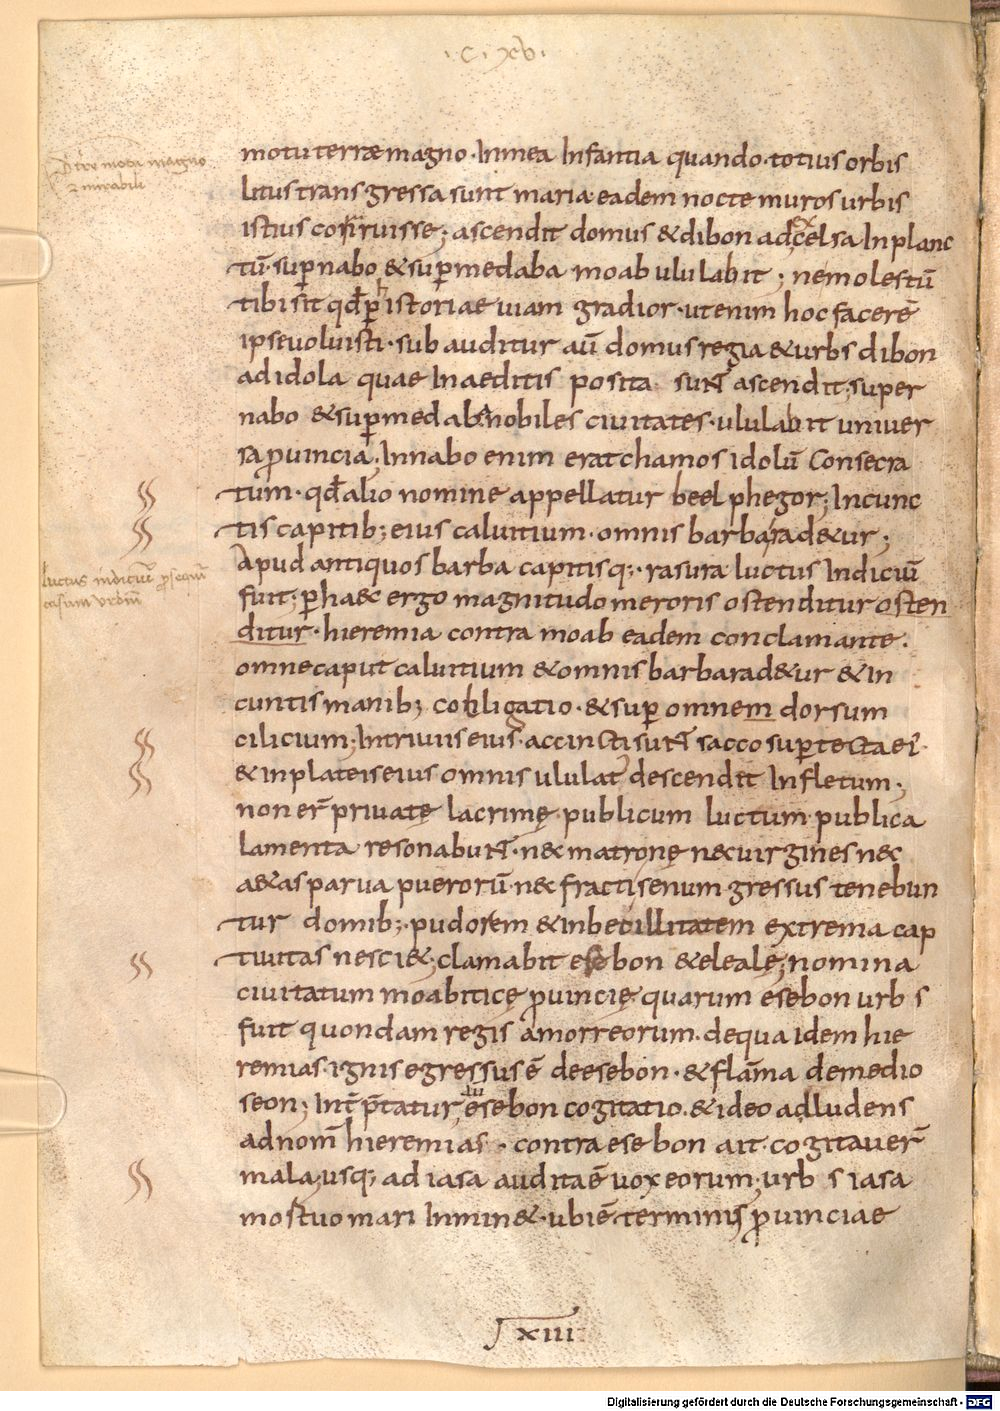 .c.xcv.
motu terrae magno. In mea Infantia quando. totius orbis
De terre motu magno
litus transgressa sunt maria. eadem nocte muros urbis
& mirabili
istius corruisse; ascendit domus & dibon ad excelsa In planc
tū. sup nabo & sup medaba moab ululabit; ne molestū
tibi sit qđ p historiae uiam gradior. ut enim hoc facerē
ipse uoluisti. sub auditur aū domus regia & urbs dibon
ad idola quae In aeditis posita sunt ascendit; super
nabo & sup medaba nobiles ciuitates. ululabit uniuer
sa puincia; In nabo enim erat chamos idolū Consecra
tum. qđ alio nomine appellatur beel phegor; In cunc
tis capitib; eius caluitium. omnis barba rad&ur;
Apud antiquos barba capitisq;. rasura luctus Indiciū
luctus indiciū
fuit; p ha&c ergo magnitudo meroris ostenditur osten
casum urbiū
ditur. hieremia contra moab eadem conclamante.
omne caput caluitium & omnis barba rad&ur & In
cuntis manib; colligatio. & sup omnem dorsum
cilicium; In triuiis eius. accincti sunt sacco sup tecta ei'.
& in plateis eius omnis ululat' descendit In fletum;
non er̄ priuatę lacrimę. publicum luctum. publica
lamenta resonabunt. nec matronę nec uirgines nec
a&as parua puerorū. nec fracti senum gressus tenebun
tur domib;. pudorem & inbecillitatem extrema cap
tiuitas nesci&; clamabit esebon & elealę; nomina
ciuitatum moabiticę puincię. quarum esebon urbs
fuit quondam regis amorreorum. de qua idem hie
remias. ignis egressus ē de esebon. & flāma de medio
seon; Intptatur esebon cogitatio. & ideo adludens
ad nom̄ hieremias. contra esebon ait. cogitauer̄
mala; usq; ad iasa audita ē uox eorum; urbs iasa
mostuo mari Inmin&. ubi ē terminus puinciae
xiii
Digitalisierung gefördert durch die Deutsche Forschungsgemeinschaft - DFG